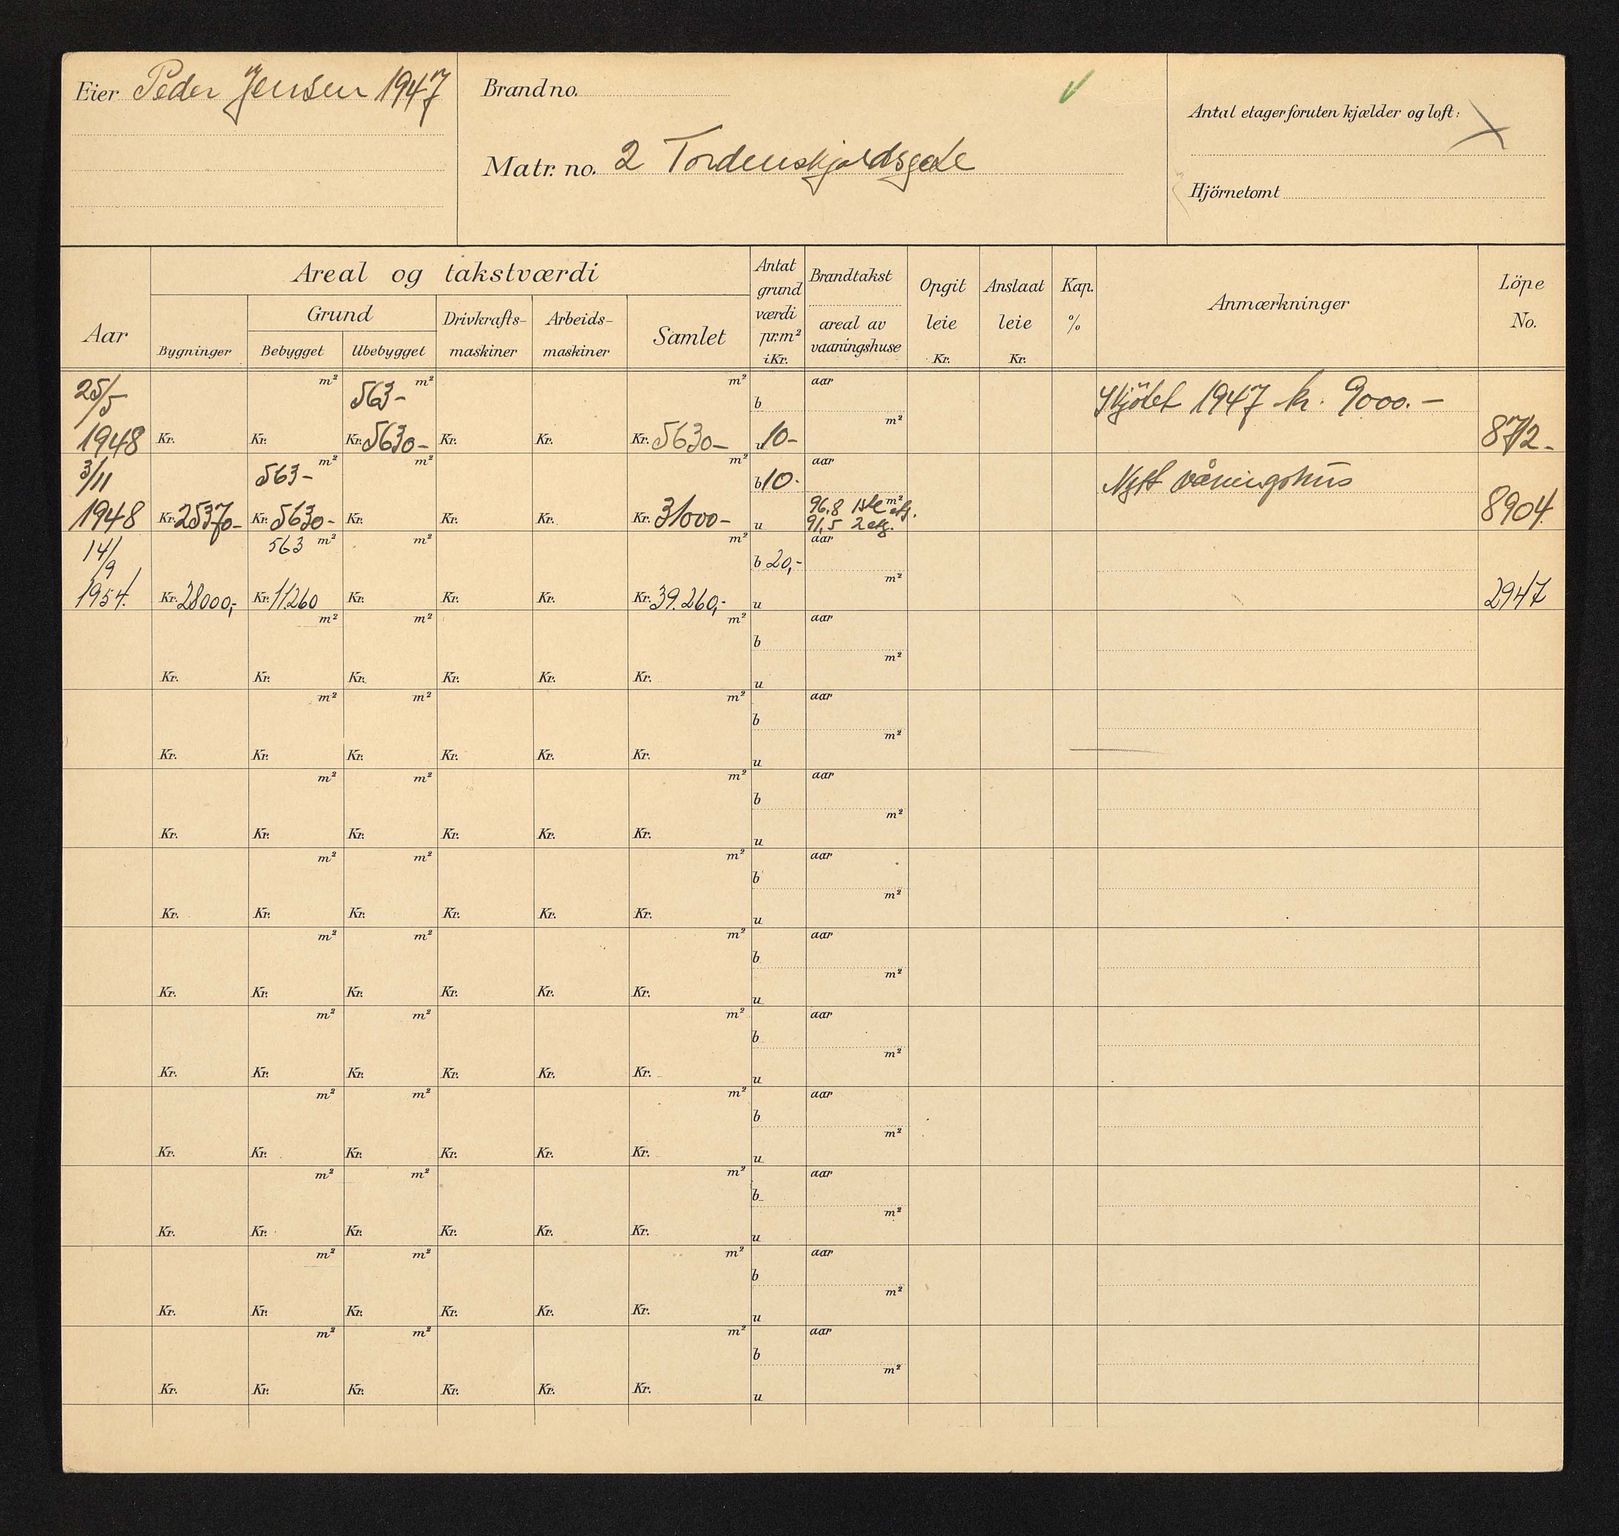 Eier Peder Jensen 1947
Brand no.
Matr. no. 2 Tordenskjoldsgate
Antal etager foruten kjælder og loft:
Hjörnetomt
Aar
Areal og takstværdi
Grund
Bygninger
Bebygget
Ubebygget
Drivkrafts-
maskiner
Arbeids-
maskiner
Samlet
Antat
grund
værdi
pr.m²
i Kr.
Brandtakst
areal av
vaaningshuse
Opgit
leie
Kr.
Anslaat
leie
Kr.
Kap.
%
Anmærkninger
Löpe
No.
25/5 m² 563- m² m² aar Skjötet 1947 kr. 9000.-
b m²
1948 Kr. Kr. Kr. 5630- Kr. Kr. Kr. 5630- u 10- 8712-
3/11 563- m² m² m² b 10.- aar Nytt våningshus
96,8 1ste etg. m²
1948 Kr. 25370- Kr. 5630- Kr. Kr. Kr. Kr. 31000- u 91,5 2 etg. 8904
14/9 563 m² m² m² b 20,- aar
m²
1954. Kr. 28000,- Kr. 11260 Kr. Kr. Kr. Kr. 39.260,- u 2947
m² m² m² aar
b m²
Kr. Kr. Kr. Kr. Kr. Kr. u
m² m² m² aar
b m²
Kr. Kr. Kr. Kr. Kr. Kr. u
m² m² m² aar
b m²
Kr. Kr. Kr. Kr. Kr. Kr. u
m² m² m² aar
b m²
Kr. Kr. Kr. Kr. Kr. Kr. u
m² m² m² aar
b m²
Kr. Kr. Kr. Kr. Kr. Kr. u
m² m² m² aar
b m²
Kr. Kr. Kr. Kr. Kr. Kr. u
m² m² m² aar
b m²
Kr. Kr. Kr. Kr. Kr. Kr. u
m² m² m² aar
b m²
Kr. Kr. Kr. Kr. Kr. Kr. u
m² m² m² aar
b m²
Kr. Kr. Kr. Kr. Kr. Kr. u
m² m² m² aar
b m²
Kr. Kr. Kr. Kr. Kr. Kr. u